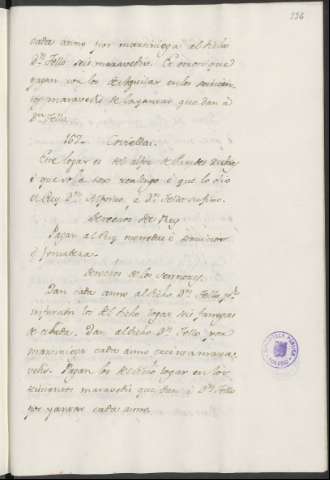 136
cada anno por martiniega al dicho
Dn. Tello seis maravedis. E otrosi que
pagan con los de Aguilar en los
maravedis de la yantar que dan a
Dn. Tello.
162. Coviellas.
Este logar es del
e que solia ser realengo e que lo dio
el Rey Dn. Alfonso, a Dn. Tello su fijo.
Derechos del Rey
Pagan al Rey monedas e servicios
e fonsadera.
Derechos de los sennores
Dan cada anno al dicho Dn. Tello, por
infurción los del dicho logar seis fanegas
de cebada. Dan al dicho Dn. Tello por
martiniega cada anno marave-
dis. Pagan los del dicho logar en los
maravedis que dan a Dn. Tello
por yantar cada anno.
BIBLIOTECA PUBLICA
TOLEDO